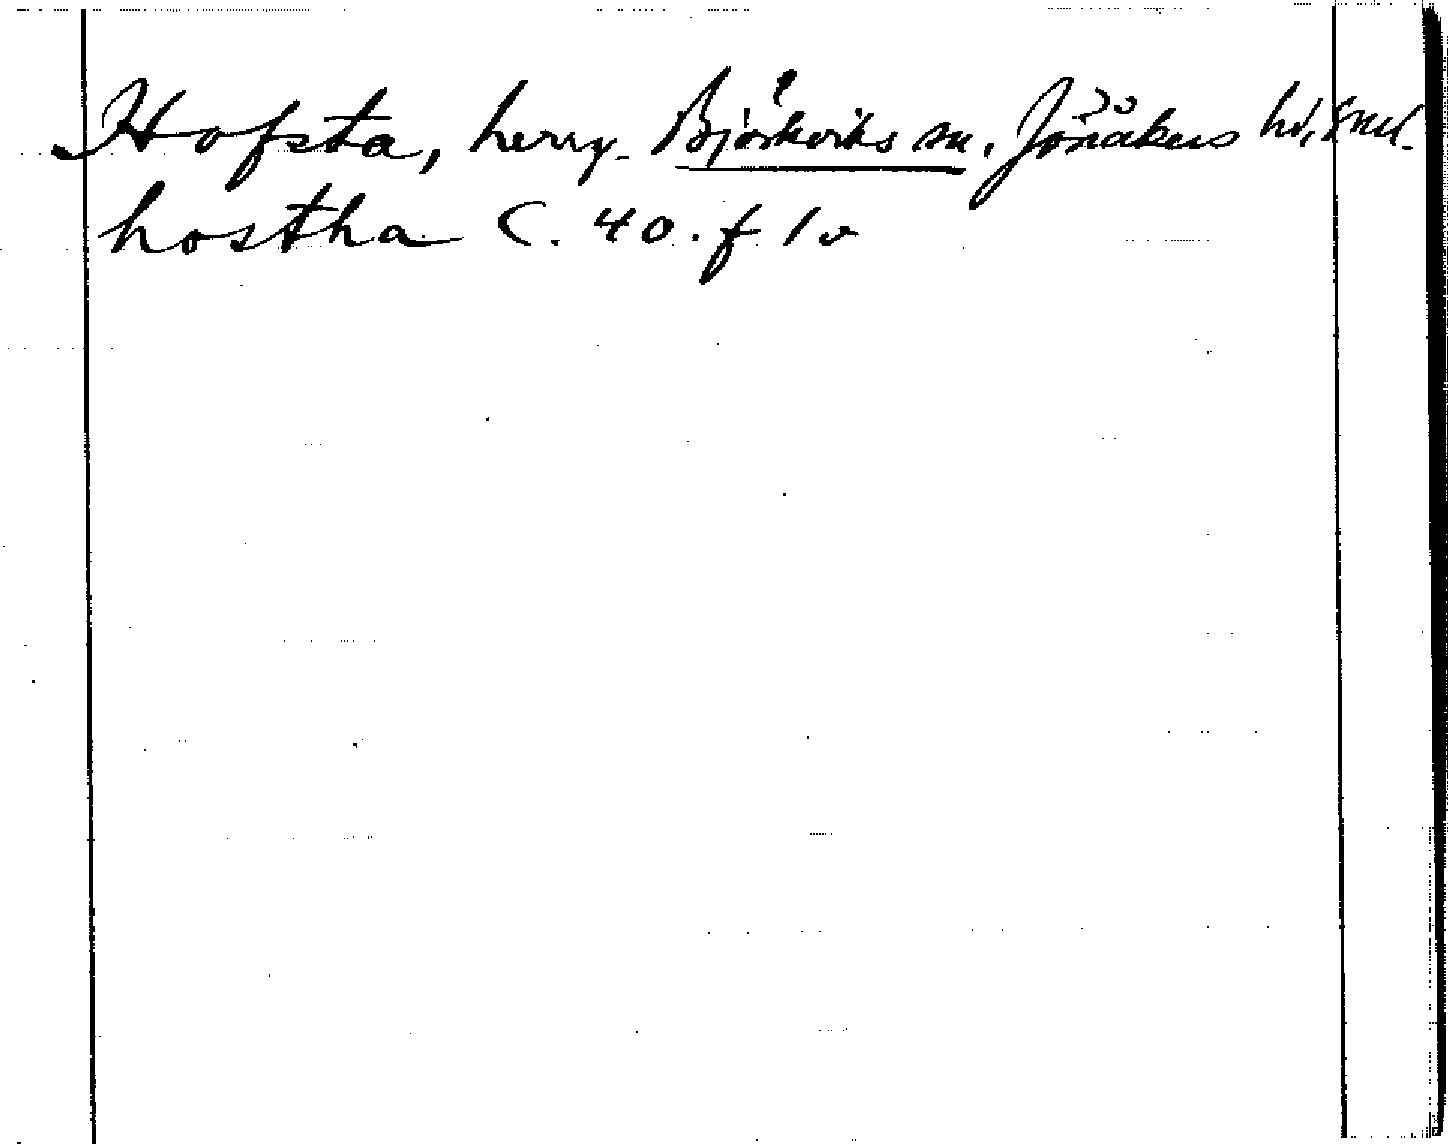 Hofsta, herrg. Björkviks sn, Jönåkers hd, Sml.
hostha C. 40. f 1v